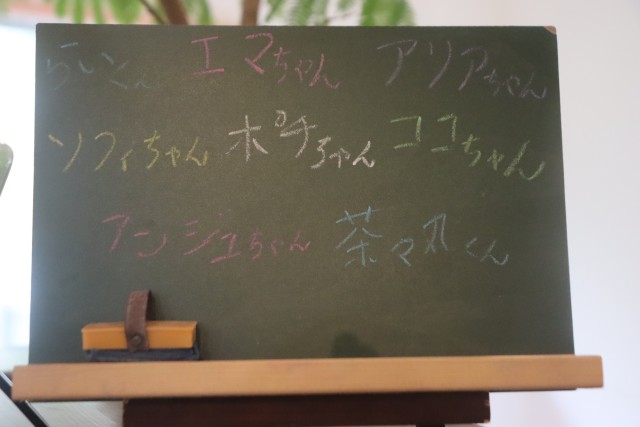 らいくん エマちゃん アリアちゃん
ソフィちゃん ポチちゃん ココちゃん
アンジュちゃん 茶々丸くん